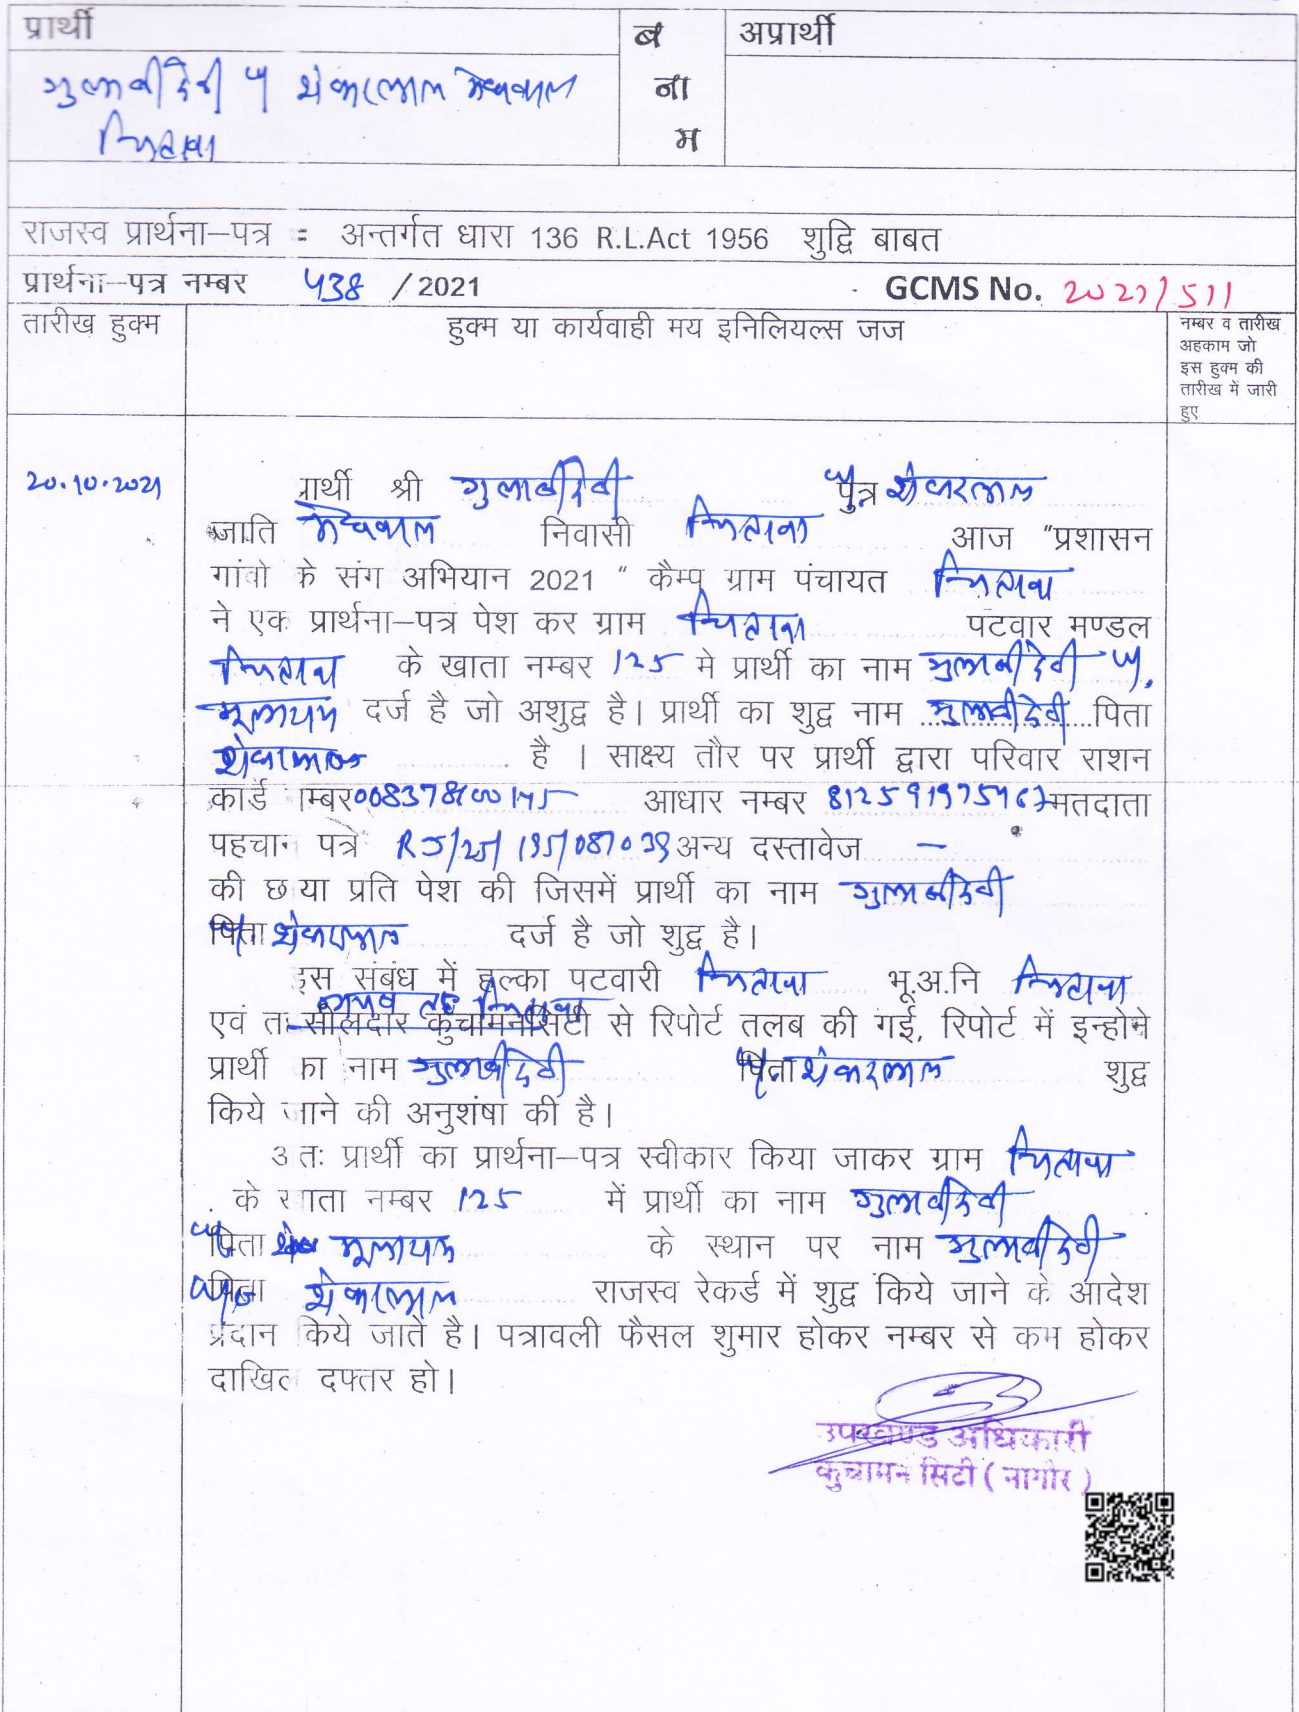 प्रार्थी
ब
ना
म
अप्रार्थी
गुलाबीदेवी प/ शंकरलाल मेघवाल
चितावा
राजस्व प्रार्थना–पत्र = अन्तर्गत धारा 136 R.L.Act 1956 शुद्वि बाबत
प्रार्थना–पत्र नम्बर 438 / 2021 GCMS No. 2021/511
तारीख हुक्म
हुक्म या कार्यवाही मय इनिलियल्स जज
नम्बर व तारीख
अहकाम जो
इस हुक्म की
तारीख में जारी
हुए
20.10.2021
प्रार्थी श्री गुलाबीदेवी पुत्र शंकरलाल
जाति मेघवाल निवासी चितावा आज "प्रशासन
गांवो के संग अभियान 2021 " कैम्प ग्राम पंचायत चितावा
ने एक प्रार्थना–पत्र पेश कर ग्राम चितावा पटवार मण्डल
चितावा के खाता नम्बर 125 मे प्रार्थी का नाम गुलाबीदेवी प/
मूलाराम दर्ज है जो अशुद्व है। प्रार्थी का शुद्व नाम गुलाबीदेवी पिता
शंकरलाल है । साक्ष्य तौर पर प्रार्थी द्वारा परिवार राशन
कार्ड म्बर आधार नम्बर मतदाता
पहचान पत्र अन्य दस्तावेज –
की छाया प्रति पेश की जिसमें प्रार्थी का नाम गुलाबीदेवी
पिता शंकरलाल दर्ज है जो शुद्व है।
इस संबंध में हल्का पटवारी चितावा भू.अ.नि चितावा
नायब तह चितावा
एवं तहसीलदार कुचामनसिटी से रिपोर्ट तलब की गई, रिपोर्ट में इन्होने
प्रार्थी का नाम गुलाबीदेवी पिता शंकरलाल शुद्व
किये जाने की अनुशंषा की है।
अतः प्रार्थी का प्रार्थना–पत्र स्वीकार किया जाकर ग्राम चितावा
के खाता नम्बर 125 में प्रार्थी का नाम गुलाबीदेवी
पिता मूलाराम के स्थान पर नाम गुलाबीदेवी
पिता शंकरलाल राजस्व रेकर्ड में शुद्व किये जाने के आदेश
प्रदान किये जाते है। पत्रावली फैसल शुमार होकर नम्बर से कम होकर
दाखिल दफ्तर हो।
उपखण्ड अधिकारी
कुचामन सिटी ( नागौर )